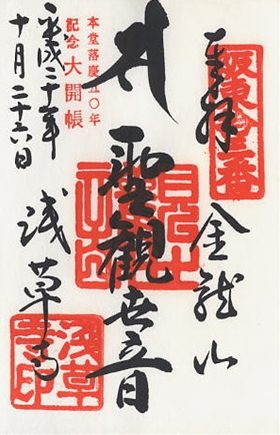 奉拝
坂東十三番
金龍山
聖観世音
本堂落慶五〇年
記念大開帳
浅草寺
平成二十年
十月二十六日
浅草寺印